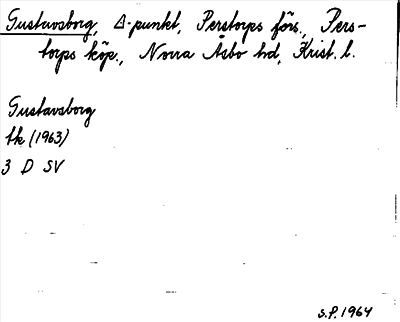 Gustavsborg, Δ-punkt, Perstorps förs., Pers-
torps köp., Norra Åsbo hd, Krist. l.
Gustavsborg
tk (1963)
3 D SV
S.P. 1964